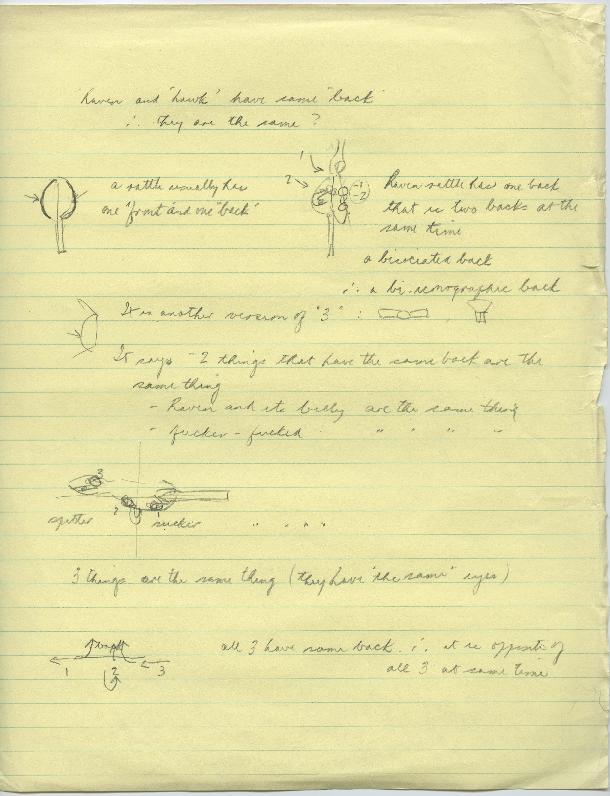 'haven and 'hawk' have same "back"
∴ they are the same?
a rattle usually has
one "front and one "back"
1
2
-1
-2
Raven rattle has one back
that is two backs at the
same time
a bisociated back
∴ a bi-iconographic back
It is another version of "3" :
It says - 2 things that have the same back are the
same thing
- Raven and its belly are the same thing
" fucker - fucked " " " "
3
2
1
spitter sucker " " " "
3 things are the same thing (they have "the same" eyes)
1 2 3
all 3 have same back. ∴ it is opposite of
all 3 at same time